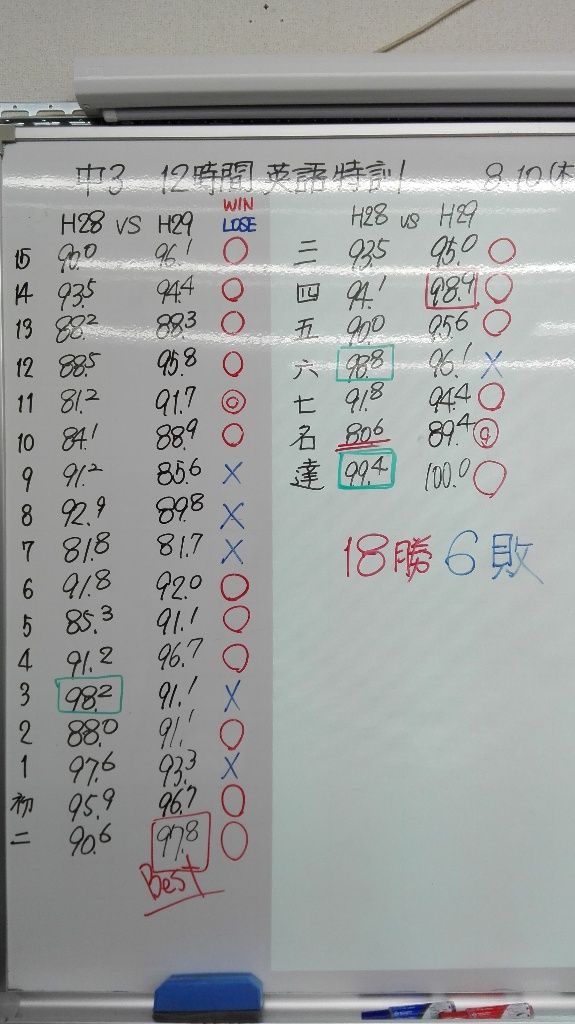 中3 12時間 英語特訓 8.10(木
H28 VS H29 WIN LOSE
15 90.0 96.1 ○
14 93.5 94.4 ○
13 88.2 88.3 ○
12 88.5 95.8 ○
11 81.2 91.7 ◎
10 84.1 88.9 ○
9 91.2 85.6 ×
8 92.9 89.8 ×
7 81.8 81.7 ×
6 91.8 92.0 ○
5 85.3 91.1 ○
4 91.2 96.7 ○
3 98.2 91.1 ×
2 88.0 91.1 ○
1 97.6 93.3 ×
初 95.9 96.7 ○
二 90.6 97.8 ○
Best
H28 VS H29
三 93.5 95.0 ○
四 94.1 98.9 ○
五 90.0 95.6 ○
六 98.8 96.1 ×
七 91.8 94.4 ○
名 80.6 89.4 ◎
達 99.4 100.0 ○
18勝6敗